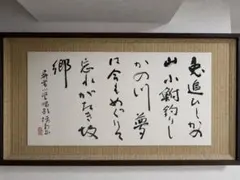 兎追ひしかの
山小鮒釣りし
かの川 夢
は今もめぐりて
忘れがたき故
郷